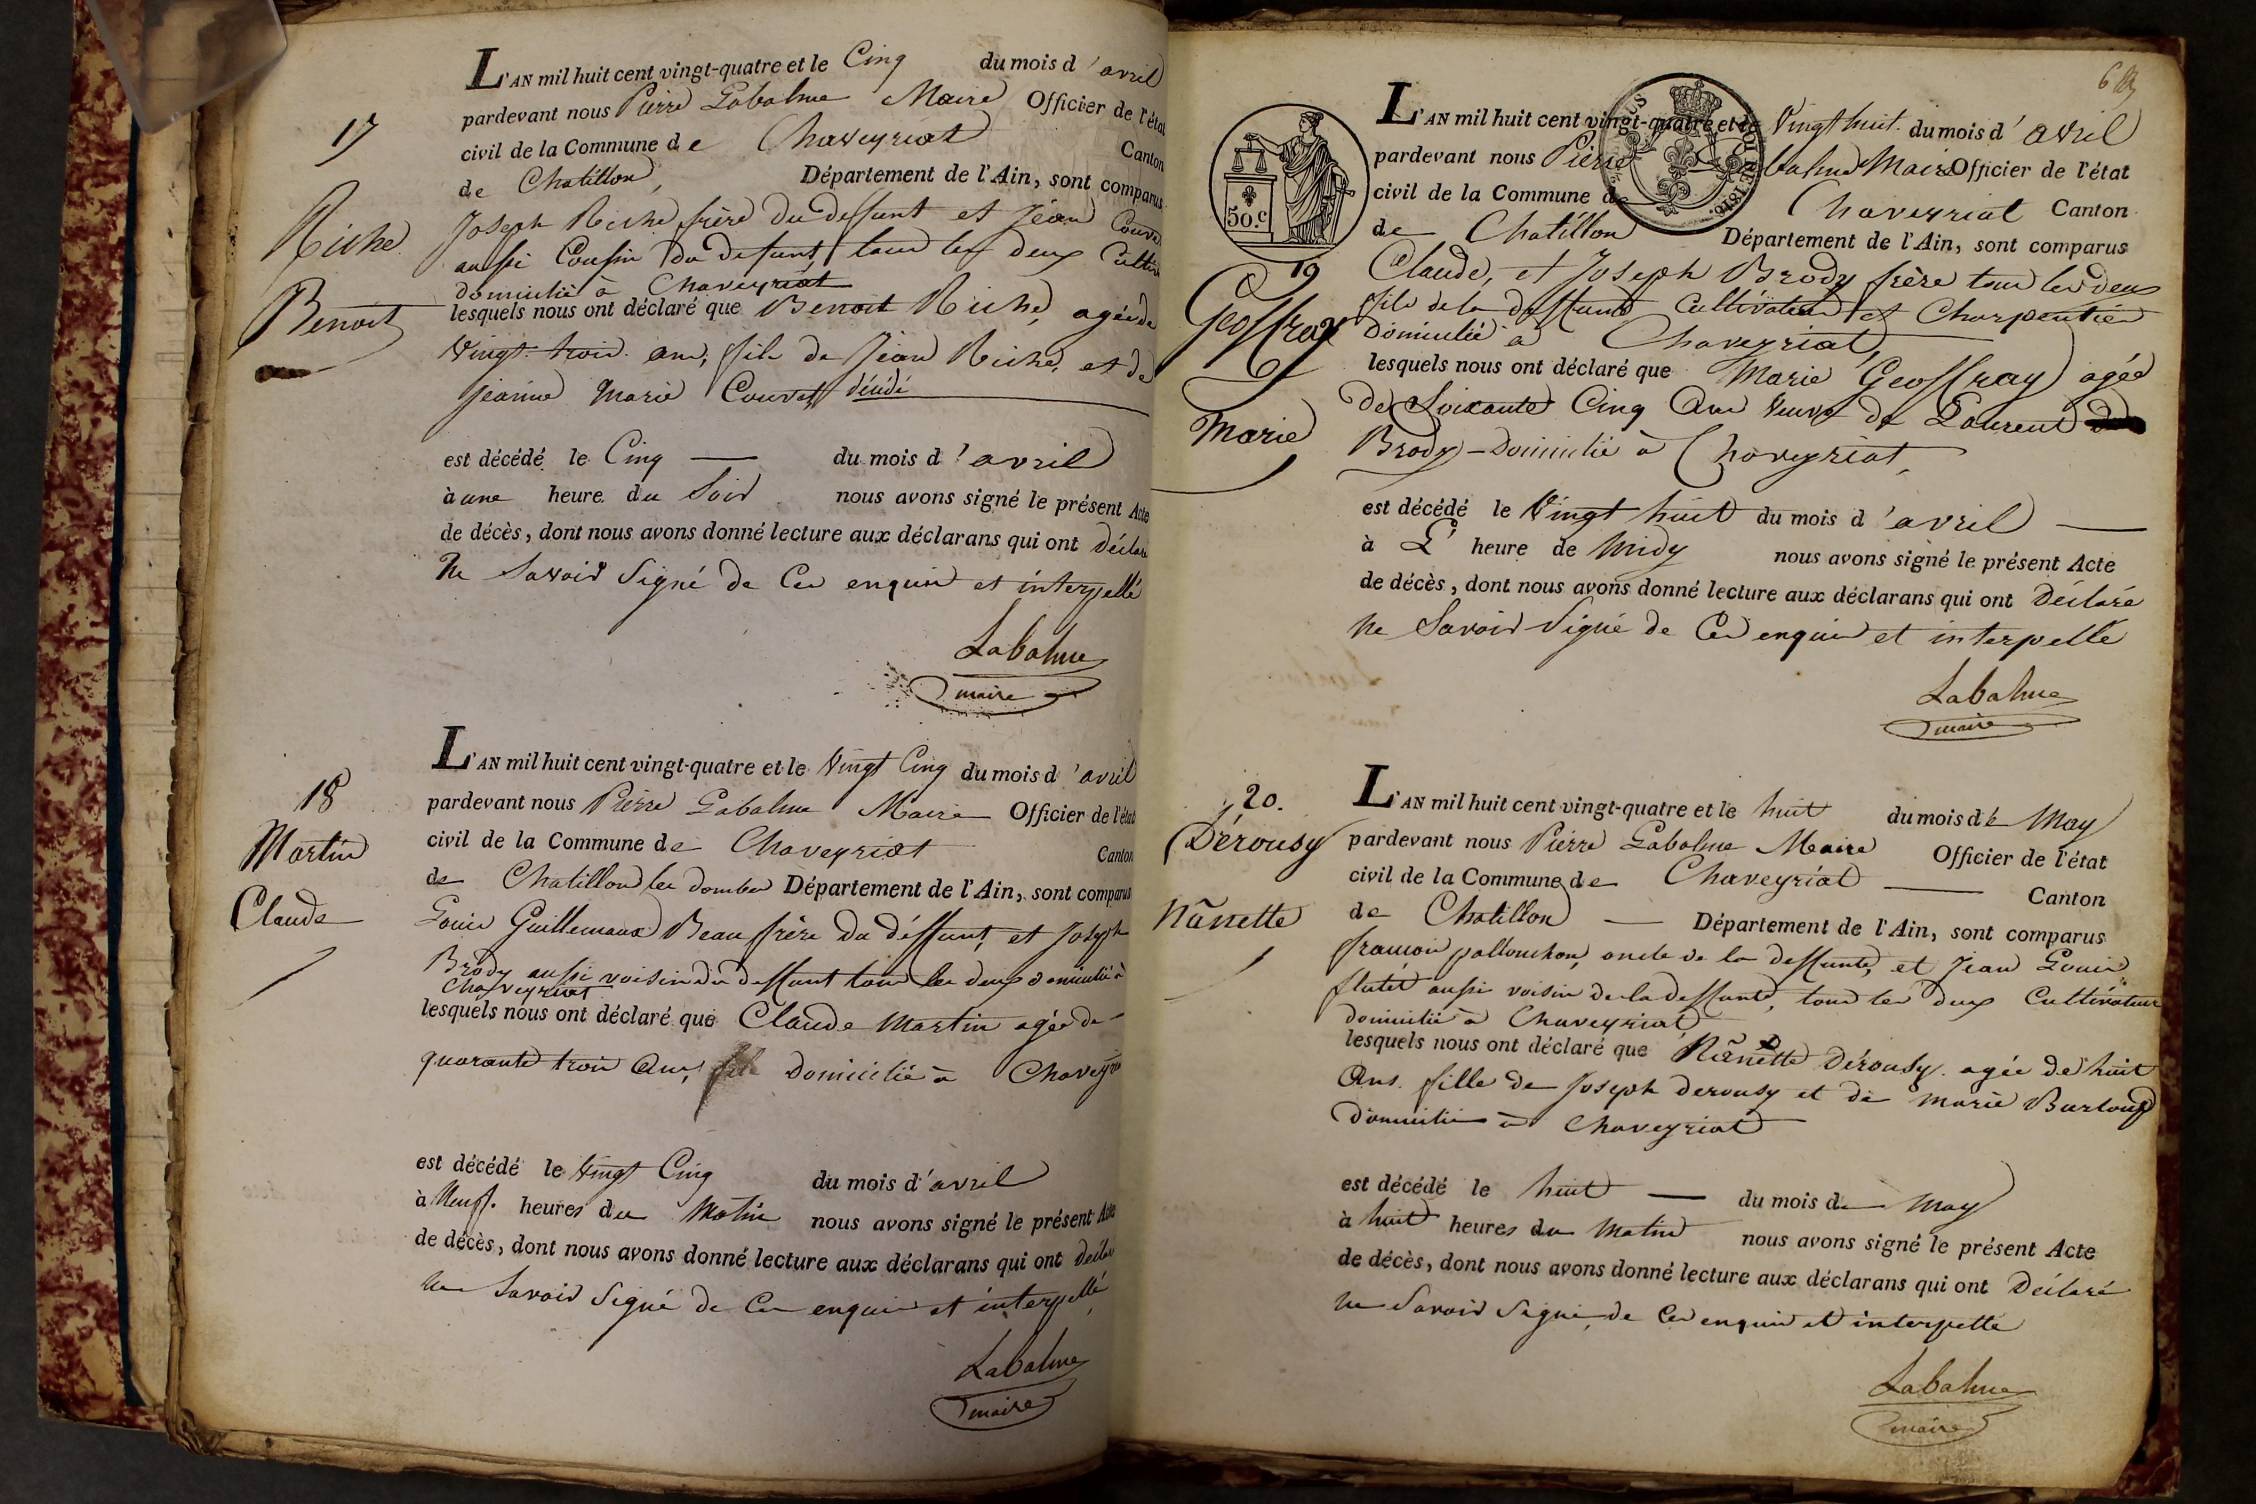 L'AN mil huit cent vingt-quatre et le Cinq du mois d'avril
pardevant nous Pierre Labalme Maire Officier de l'état
civil de la Commune de Chaveyriat Canton
de Chatillon, Département de l'Ain, sont comparus
Joseph Riche frère du deffunt et Jean Couv
aussi Cousin du defunt, tous les deux Cultiv
domicilié à Chaveyriat
lesquels nous ont déclaré que Benoit Riche, agée de
Vingt trois ans, fils de Jean Riche, et de
jeanne Marie Couvet, décédé
est décédé le Cinq du mois d'avril
à une heure du Soir nous avons signé le présent Acte
de décès, dont nous avons donné lecture aux déclarans qui ont déclaré
Ne Savoir Signé de Ces enquis et interpellé
Labalme
maire
17
Riche
Benoit
L'AN mil huit cent vingt-quatre et le Vingt Cinq du mois d'avril
pardevant nous Pierre Labalme Maire Officier de l'état
civil de la Commune de Chaveyriat Canton
de Chatillon les dombes Département de l'Ain, sont comparus
Louis Guillemaux Beau frère du déffunt, et Joseph
Brody aussi voisin du deffunt tous les deux domicilié à
Chaveyriat
lesquels nous ont déclaré que Claude Martin agée de
quarante trois Ans, domicilié à Chavey
est décédé le Vingt Cinq du mois d'avril
à Neuf. heures du Matin nous avons signé le présent Acte
de décès, dont nous avons donné lecture aux déclarans qui ont déclaré
ne Savoir Signé de Ces enquis et interpellé
Labalme
maire
18
Martin
Claude
6
50.c
L'AN mil huit cent vingt-quatre et le Vingt huit. du mois d'avril
pardevant nous Pierre balme Maire Officier de l'état
civil de la Commune de Chaveyriat Canton
de Chatillon Département de l'Ain, sont comparus
Claude, et Joseph Brody frère tous les deux
fils de la deffunte Cultivateur et Charpentier
Domicilié à Chaveyriat,
lesquels nous ont déclaré que Marie Geoffray agée
de Soixante Cinq Ans veuve de Laurent
Brody - Domicilié à Chaveyriat,
est décédé le Vingt huit du mois d'avril
à L' heure de Midy nous avons signé le présent Acte
de décès, dont nous avons donné lecture aux déclarans qui ont Déclaré
Ne Savoir Signé de Ces enquis et interpellé
Labalme
maire
19
Geoffray
Marie
L'AN mil huit cent vingt-quatre et le huit du mois de May
pardevant nous Pierre Labalme Maire Officier de l'état
civil de la Commune de Chaveyriat Canton
de Chatillon Département de l'Ain, sont comparus
francois pallouchon, oncle de la deffunte, et Jean Louis
flutét aussi voisin de la deffunte, tous les deux Cultivateur
domicilié à Chaveyriat
lesquels nous ont déclaré que Nanette Dérousy. agée de huit
Ans. fille de Joseph Derousy et de Marie
Domicilié à Chaveyriat
est décédé le huit du mois de May
à huit heures du Matin nous avons signé le présent Acte
de décès, dont nous avons donné lecture aux déclarans qui ont Déclaré
ne Savoir Signé de Ces enquis et interpellé
Labalme
maire
20.
Dérousy
Nanette